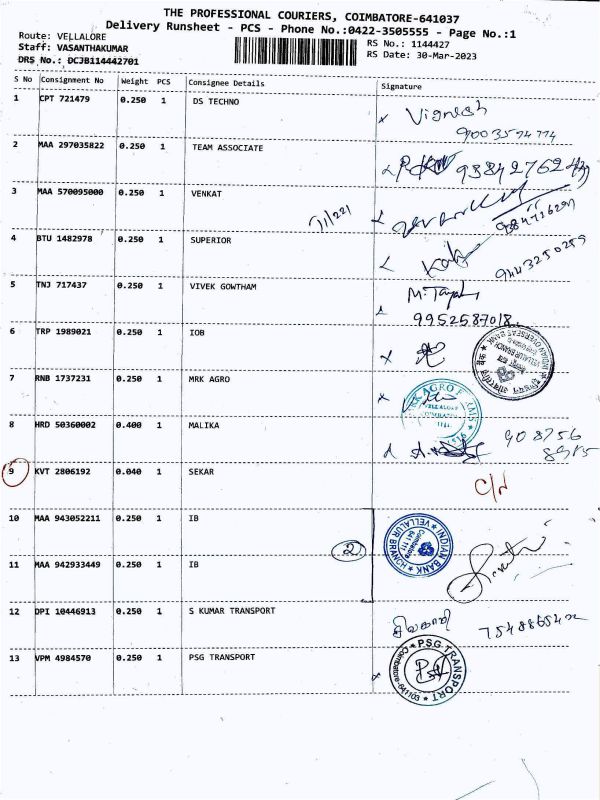 THE PROFESSIONAL COURIERS, COIMBATORE-641037
Delivery Runsheet - PCS - Phone No.:0422-3505555 - Page No.:1
Route: VELLALORE
Staff: VASANTHAKUMAR
DRS No.: DCJB114442701
RS No.: 1144427
RS Date: 30-Mar-2023
S No Consignment No Weight PCS Consignee Details Signature
1 CPT 721479 0.250 1 DS TECHNO Vignesh
2 MAA 297035822 0.250 1 TEAM ASSOCIATE
3 MAA 570095000 0.250 1 VENKAT
4 BTU 1482978 0.250 1 SUPERIOR 9443250259
5 TNJ 717437 0.250 1 VIVEK GOWTHAM
9952587018
6 TRP 1989021 0.250 1 IOB INDIAN OVERSEAS BANK
7 RNB 1737231 0.250 1 MRK AGRO
8 HRD 50360002 0.400 1 MALIKA 908756
8915
9 KVT 2806192 0.040 1 SEKAR C/N
10 MAA 943052211 0.250 1 IB INDIAN BANK VELLALUR BRANCH Coimbatore 641 111
2
11 MAA 942933449 0.250 1 IB
12 DPI 10446913 0.250 1 S KUMAR TRANSPORT சிவகாமி
13 VPM 4984570 0.250 1 PSG TRANSPORT PSG TRANSPORT Coimbatore-641103